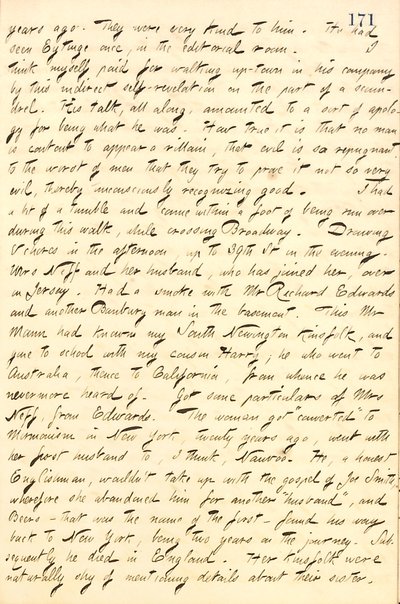 171
years ago. They were very kind to him. He had
seen Eytinge once, in the editorial room. I
think myself paid for walking up-town in his company
by this indirect self-revelation on the part of a scoun-
drel. His talk, all along, amounted to a sort of apolo-
gy for being what he was. How true it is that no man
is content to appear a villain, that evil is so repugnant
to the worst of men that they try to prove it not so very
evil, thereby unconsciously recognizing good. I had
a bit of a tumble and came within a foot of being run over
during this walk, while crossing Broadway. Drawing
& chores in the afternoon up to 39th St in the evening.
Mrs Neff and her husband, who has joined her, over
in Jersey. Had a smoke with Mr Richard Edwards
and another Banbury man in the basement. This Mr
Mann had known my South Newington kinsfolk, and
gone to school with my cousin Harry; he who went to
Australia, thence to California, from whence he was
nevermore heard of. Got some particulars of Mrs
Neff, from Edwards. The woman got "converted" to
Mormonism in New York, twenty years ago, went with
her first husband to, I think, Nauvoo. He, a honest
Englishman, wouldn't take up with the gospel of Joe Smith,
wherefore she abandoned him for another "husband", and
Beers - that was the name of the first - found his way
back to New York, being two years on the journey. Sub-
sequently he died in England. Her kinsfolk were
naturally shy of mentioning details about their sister.